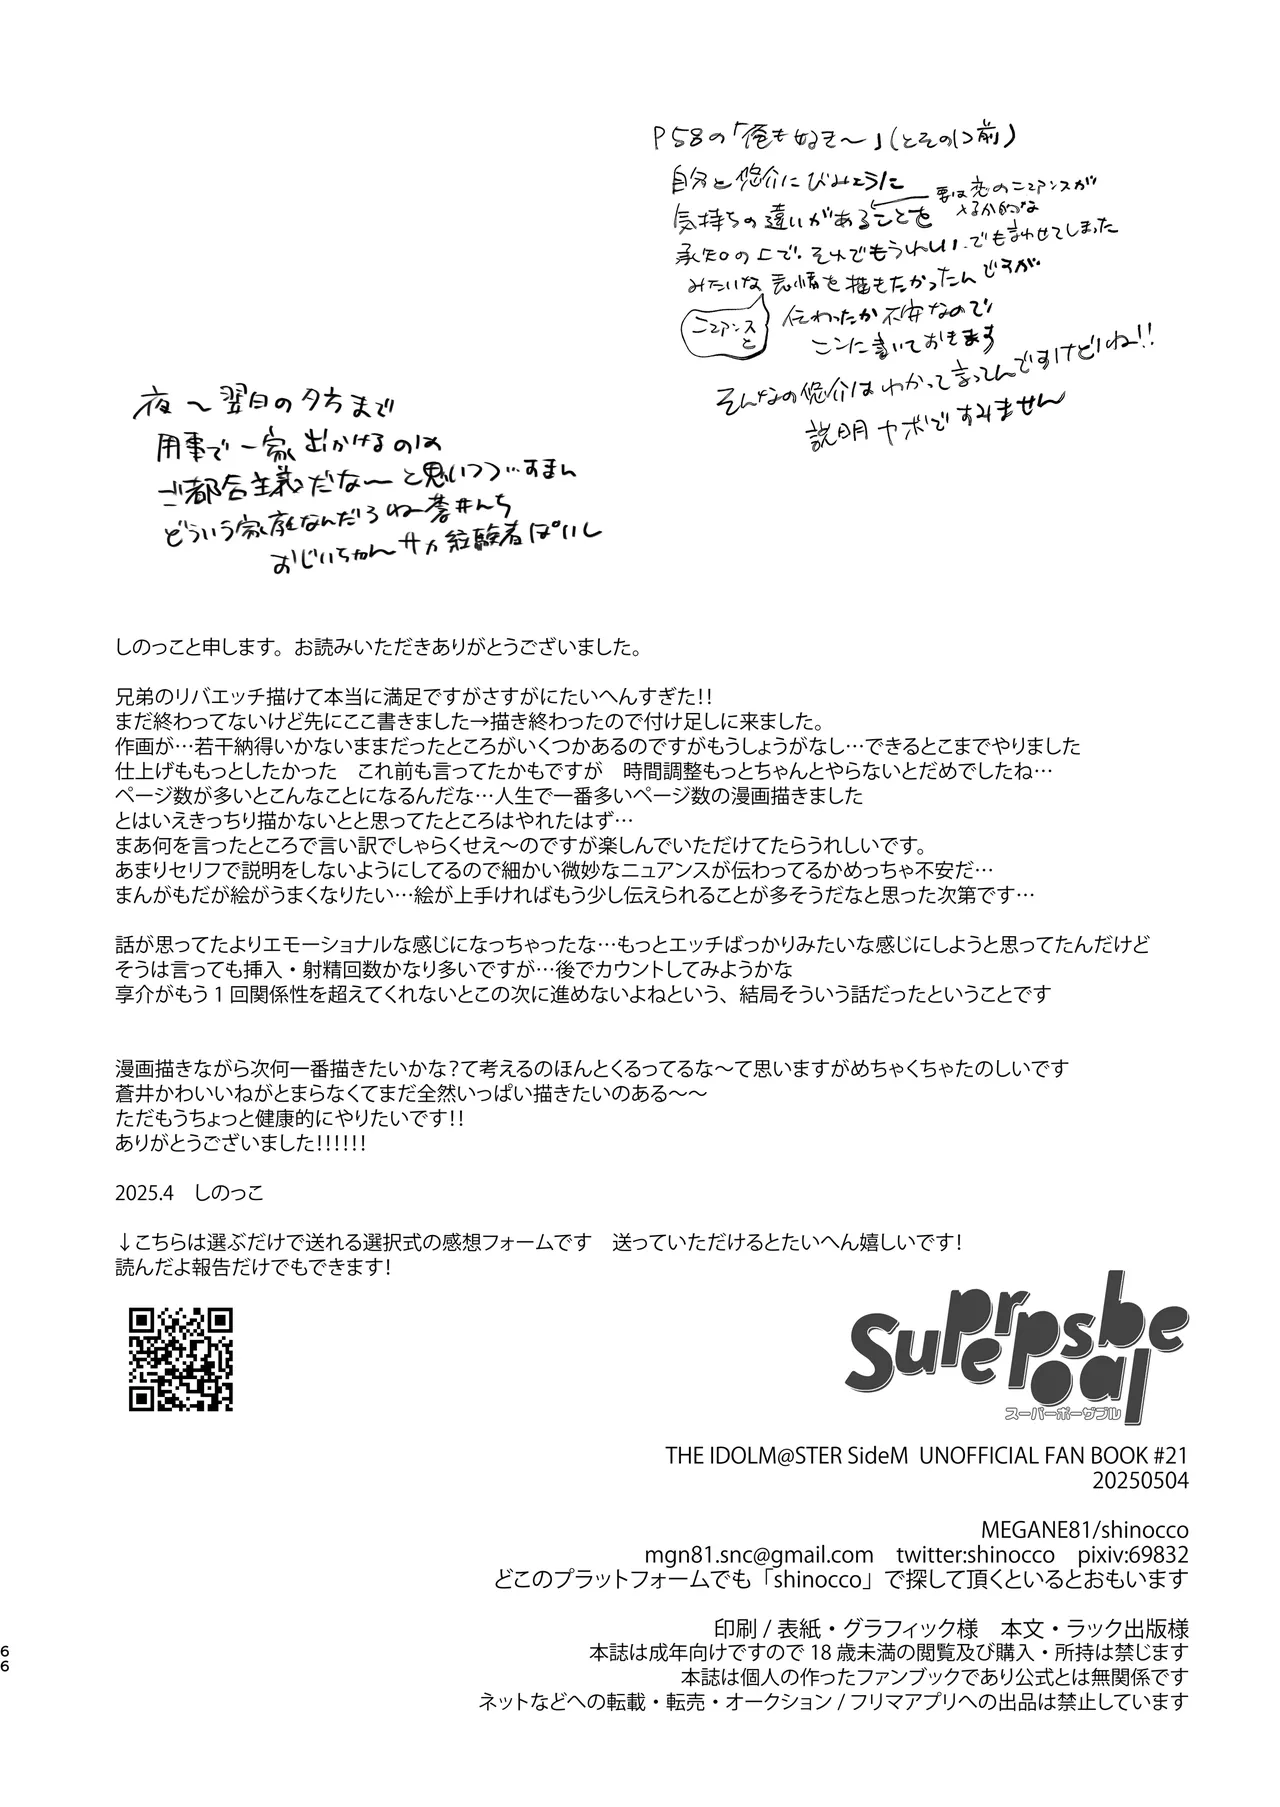 P58の「俺も好き〜」(とその口前)
自分と悠介にびみょうに
気持ちの違いがあることを
要は恋のニュアンスが
あるか的な
承知の上で、それでもうれしい、でも言わせてしまった
みたいな表情を描きたかったんですが
ニュアンスと
伝わったか不安なので
ここに書いておきます
そんなの悠介はわかって言ってんですけどね!!
説明ヤボですみません
夜〜翌日の夕方まで
用事で一家出かけるのは
ご都合主義だな〜と思いつつ…すまん
どういう家庭なんだろね蒼井んち
おじいちゃんサカ経験者ぽいし
しのっこと申します。お読みいただきありがとうございました。
兄弟のリバエッチ描けて本当に満足ですがさすがにたいへんすぎた!!
まだ終わってないけど先にここ書きました→描き終わったので付け足しに来ました。
作画が…若干納得いかないままだったところがいくつかあるのですがもうしょうがなし…できるとこまでやりました
仕上げももっとしたかった　これ前も言ってたかもですが　時間調整もっとちゃんとやらないとだめでしたね…
ページ数が多いとこんなことになるんだな…人生で一番多いページ数の漫画描きました
とはいえきっちり描かないとと思ってたところはやれたはず…
まあ何を言ったところで言い訳でしゃらくせえ〜のですが楽しんでいただけてたらうれしいです。
あまりセリフで説明をしないようにしてるので細かい微妙なニュアンスが伝わってるかめっちゃ不安だ…
まんがもだが絵がうまくなりたい…絵が上手ければもう少し伝えられることが多そうだなと思った次第です…
話が思ってたよりエモーショナルな感じになっちゃったな…もっとエッチばっかりみたいな感じにしようと思ってたんだけど
そうは言っても挿入・射精回数かなり多いですが…後でカウントしてみようかな
享介がもう1回関係性を超えてくれないとこの次に進めないよねという、結局そういう話だったということです
漫画描きながら次何一番描きたいかな?て考えるのほんとくるってるな〜て思いますがめちゃくちゃたのしいです
蒼井かわいいねがとまらなくてまだ全然いっぱい描きたいのある〜〜
ただもうちょっと健康的にやりたいです!!
ありがとうございました!!!!!!
2025.4　しのっこ
↓こちらは選ぶだけで送れる選択式の感想フォームです　送っていただけるとたいへん嬉しいです!
読んだよ報告だけでもできます!
Super
posable
スーパーポーザブル
THE IDOLM@STER SideM UNOFFICIAL FAN BOOK #21
20250504
MEGANE81/shinocco
mgn81.snc@gmail.com　twitter:shinocco　pixiv:69832
どこのプラットフォームでも「shinocco」で探して頂くといるとおもいます
印刷 / 表紙・グラフィック様　本文・ラック出版様
本誌は成年向けですので 18 歳未満の閲覧及び購入・所持は禁じます
本誌は個人の作ったファンブックであり公式とは無関係です
ネットなどへの転載・転売・オークション / フリマアプリへの出品は禁止しています
66